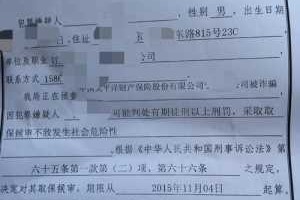 犯罪嫌疑人 ，性别 男 ，出生日期
，住址 名路815号23C
单位及职业 公司
联系方式 1580
我局正在侦查 太平洋财产保险股份有限公司 公司被诈骗
因犯罪嫌疑人 可能判处有期徒刑以上刑罚，采取取
保候审不致发生社会危险性
，根据《中华人民共和国刑事诉讼法》第
六十五条第一款第（二）项、第六十六条 之规定，
决定对其取保候审，期限从 2015年11月04日 起算。